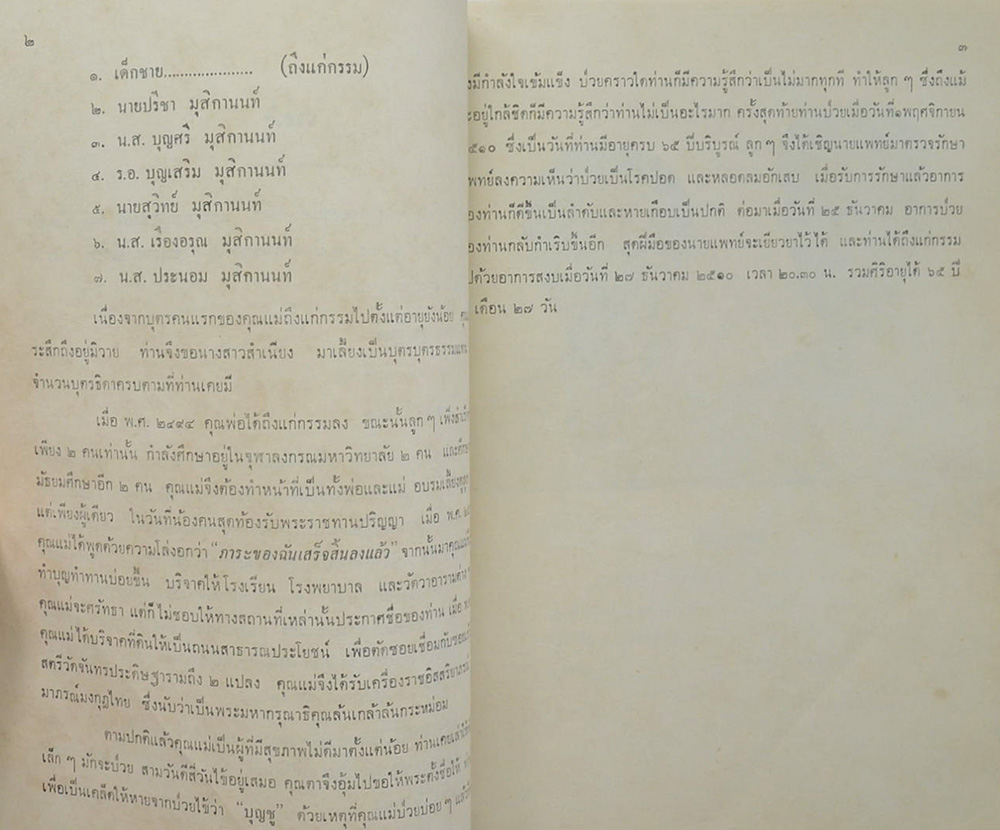 ๒
๑. เด็กชาย..................... (ถึงแก่กรรม)
๒. นายปรีชา มุสิกานนท์
๓. น.ส. บุญศรี มุสิกานนท์
๔. ร.อ. บุญเสริม มุสิกานนท์
๕. นายสุวิทย์ มุสิกานนท์
๖. น.ส. เรืองอรุณ มุสิกานนท์
๗. น.ส. ประนอม มุสิกานนท์
เนื่องจากบุตรคนแรกของคุณแม่ถึงแก่กรรมไปตั้งแต่อายุยังน้อย
ระลึกถึงอยู่มิวาย ท่านจึงขอนางสาวสำเนียง มาเลี้ยงเป็นบุตรบุตรธรรมแทน
จำนวนบุตรธิดาครบตามที่ท่านเคยมี
เมื่อ พ.ศ. ๒๔๙๔ คุณพ่อได้ถึงแก่กรรมลง ขณะนั้นลูก ๆ เพิ่ง
เพียง ๒ คนเท่านั้น กำลังศึกษาอยู่ในจุฬาลงกรณมหาวิทยาลัย ๒ คน
มัธยมศึกษาอีก ๒ คน คุณแม่จึงต้องทำหน้าที่เป็นทั้งพ่อและแม่ อบรมเลี้ยงดู
แต่เพียงผู้เดียว ในวันที่น้องคนสุดท้องรับพระราชทานปริญญา เมื่อ พ.ศ.
คุณแม่ได้พูดด้วยความโล่งอกว่า "ภาระของฉันเสร็จสิ้นลงแล้ว" จากนั้นมาคุณแม่
ทำบุญทำทานบ่อยขึ้น บริจาคให้โรงเรียน โรงพยาบาล และวัดวาอารามต่าง
คุณแม่จะศรัทธา แต่ก็ไม่ชอบให้ทางสถานที่เหล่านั้นประกาศชื่อของท่าน เมื่อ
คุณแม่ได้บริจาคที่ดินให้เป็นถนนสาธารณประโยชน์ เพื่อตัดซอยเชื่อมกับซอย
สตรีวัดจันทรประดิษฐารามถึง ๒ แปลง คุณแม่จึงได้รับเครื่องราชอิสสริยาภรณ์
มาภรณ์มงกุฎไทย ซึ่งนับว่าเป็นพระมหากรุณาธิคุณล้นเกล้าล้นกระหม่อม
ตามปกติแล้วคุณแม่เป็นผู้ที่มีสุขภาพไม่ดีมาตั้งแต่น้อย ท่านเคยเล่า
เล็ก ๆ มักจะป่วย สามวันดีสี่วันไข้อยู่เสมอ คุณตาจึงอุ้มไปขอให้พระตั้งชื่อให้
เพื่อเป็นเคล็ดให้หายจากป่วยไข้ว่า "บุญชู" ด้วยเหตุที่คุณแม่ป่วยบ่อย ๆ
๓
งมีกำลังใจเข้มแข็ง ป่วยคราวใดท่านก็มีความรู้สึกว่าเป็นไม่มากทุกที ทำให้ลูก ๆ ซึ่งถึงแม้
ะอยู่ใกล้ชิดก็มีความรู้สึกว่าท่านไม่เป็นอะไรมาก ครั้งสุดท้ายท่านป่วยเมื่อวันที่๑พฤศจิกายน
๕๑๐ ซึ่งเป็นวันที่ท่านมีอายุครบ ๖๕ ปีบริบูรณ์ ลูก ๆ จึงได้เชิญนายแพทย์มาตรวจรักษา
พทย์ลงความเห็นว่าป่วยเป็นโรคปอด และหลอดลมอักเสบ เมื่อรับการรักษาแล้วอาการ
องท่านก็ดีขึ้นเป็นลำดับและหายเกือบเป็นปกติ ต่อมาเมื่อวันที่ ๒๕ ธันวาคม อาการป่วย
องท่านกลับกำเริบขึ้นอีก สุดฝีมือของนายแพทย์จะเยียวยาไว้ได้ และท่านได้ถึงแก่กรรม
ปด้วยอาการสงบเมื่อวันที่ ๒๗ ธันวาคม ๒๕๑๐ เวลา ๒๐.๓๐ น. รวมศิริอายุได้ ๖๕ ปี
เดือน ๒๗ วัน